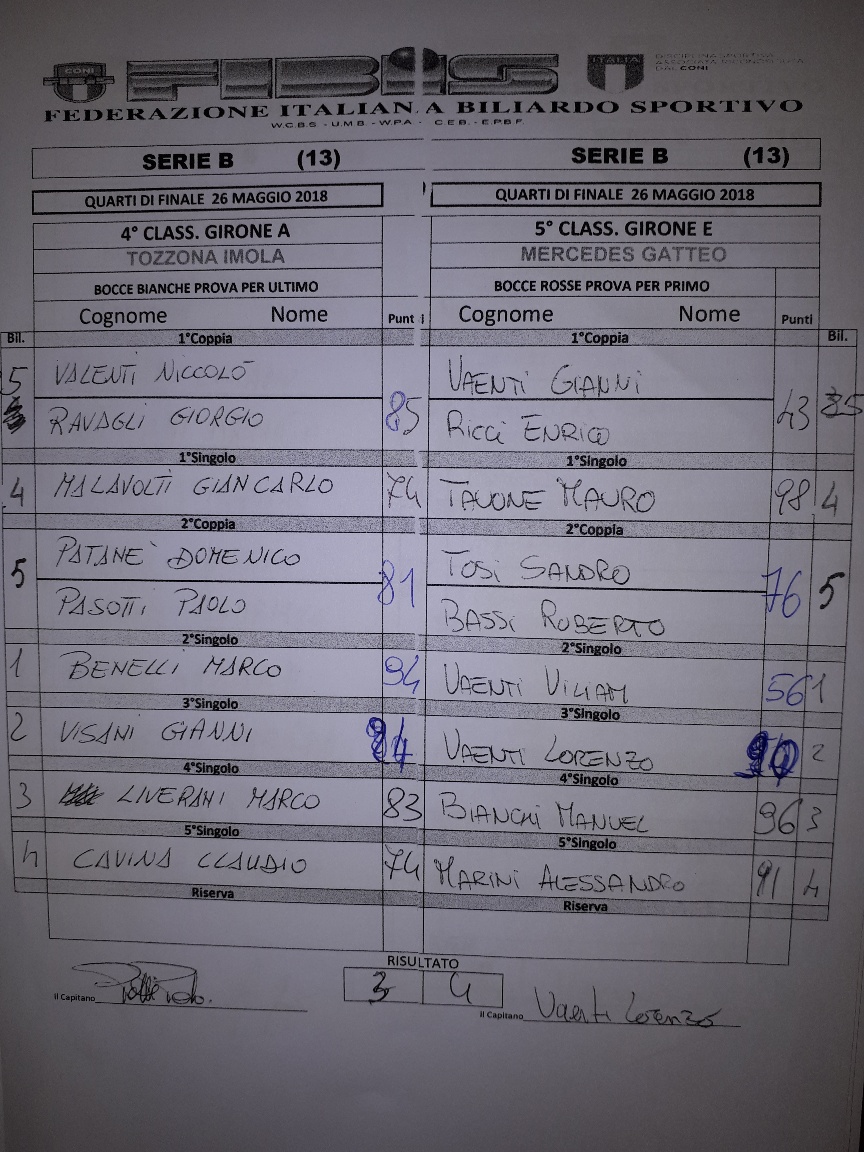 CONI
FIBiS
ITALIA
DISCIPLINA SPORTIVA
ASSOCIATA RICONOSCIUTA
DAL CONI
FEDERAZIONE ITALIANA BILIARDO SPORTIVO
W.C.B.S - U.M.B - W.P.A - C.E.B. - E.P.B.F
SERIE B (13) SERIE B (13)
QUARTI DI FINALE 26 MAGGIO 2018 QUARTI DI FINALE 26 MAGGIO 2018
4° CLASS. GIRONE A 5° CLASS. GIRONE E
TOZZONA IMOLA MERCEDES GATTEO
BOCCE BIANCHE PROVA PER ULTIMO BOCCE ROSSE PROVA PER PRIMO
Cognome Nome Punti Cognome Nome Punti
Bil. 1°Coppia 1°Coppia Bil.
5 VALENTI NICCOLÒ 85 VAENTI GIANNI 43 5
RAVAGLI GIORGIO RICCI ENRICO
1°Singolo 1°Singolo
4 MALAVOLTI GIANCARLO 74 TAVONE MAURO 98 4
2°Coppia 2°Coppia
5 PATANE' DOMENICO 81 TOSI SANDRO 76 5
PASOTTI PAOLO BASSI ROBERTO
2°Singolo 2°Singolo
1 BENELLI MARCO 94 VAENTI VILIAM 56 1
3°Singolo 3°Singolo
2 VISANI GIANNI VAENTI LORENZO 2
4°Singolo 4°Singolo
3 LIVERANI MARCO 83 BIANCHI MANUEL 96 3
5°Singolo 5°Singolo
4 CAVINA CLAUDIO 74 MARINI ALESSANDRO 91 4
Riserva Riserva
RISULTATO
3 4
Il Capitano Il Capitano Vaenti Lorenzo